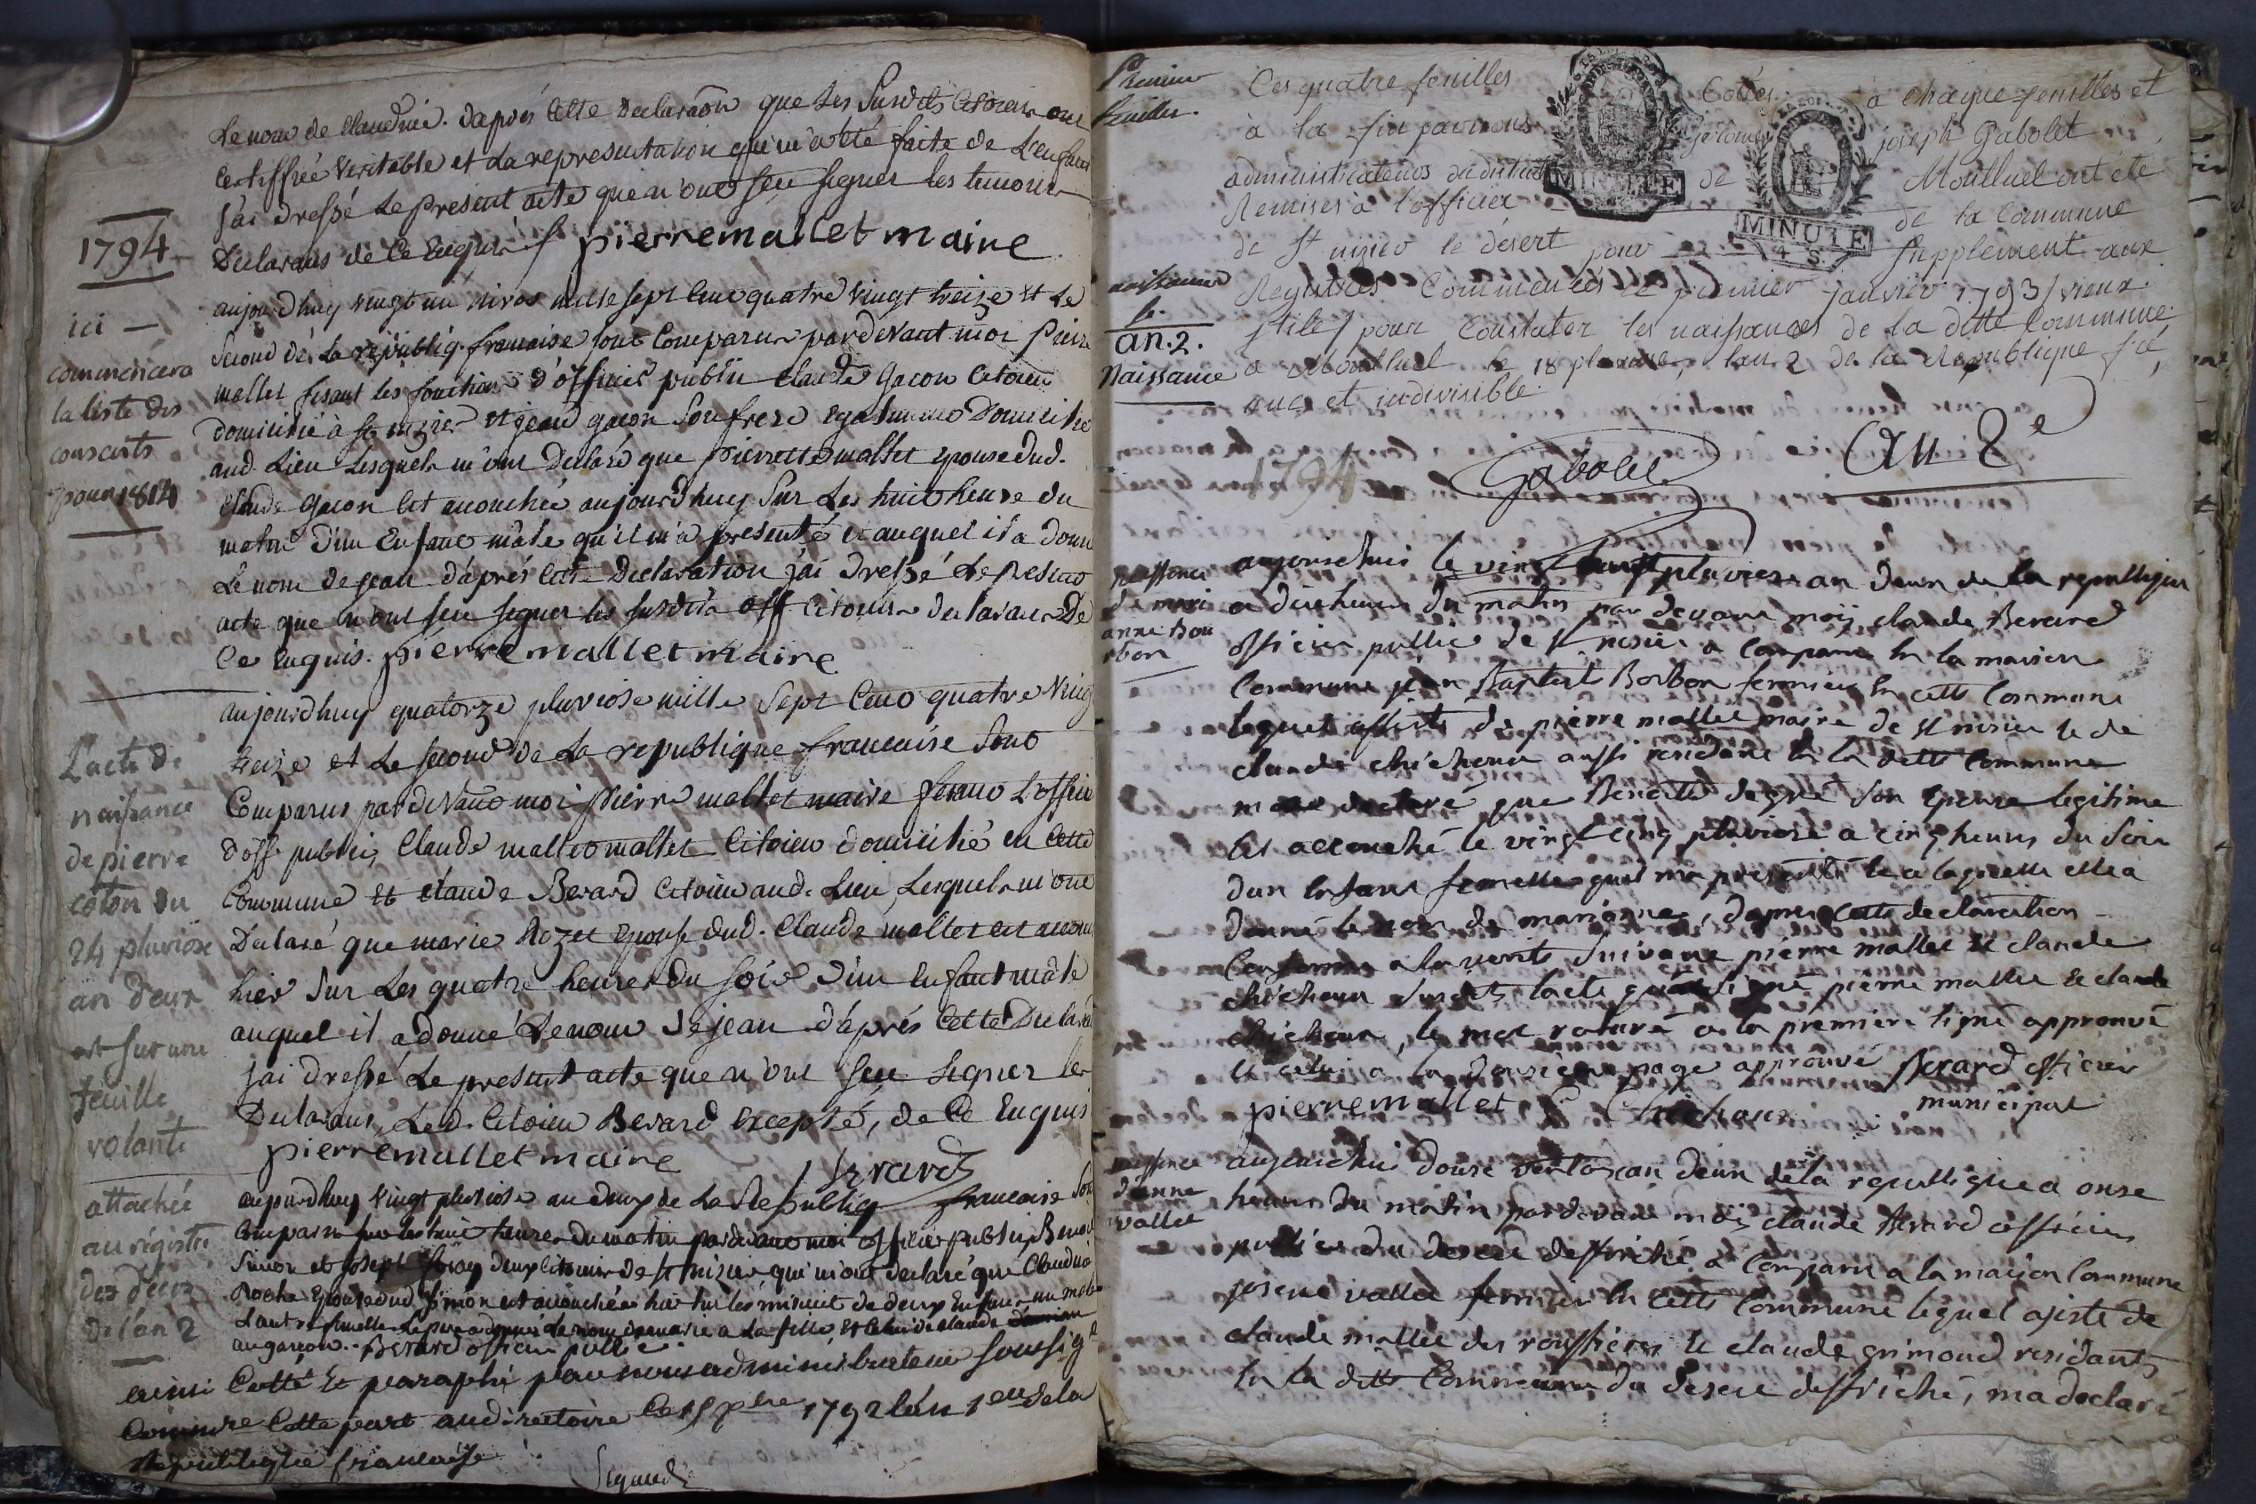 Le nom de Claudine. d'après cette Declaraõn que les susdits Citoiens ont
Certiffiée veritable et la representation qui m'a été faite de L'enfant
j'ai dressé Le present acte que n'ont sçeu signer les temoins
Declarans de ce Enquis / pierremallet maire
1794
aujourdhuy vingt un nivos mille sept Cent quatre vingt treize et Le
Second de La republiq. francaise sont Comparus pardevant moi Pierre
mallet fesant les fonctions d'officier public Claude Gacon Citoien
domicilié à St nizier et jean gacon Son frere egalement Domicilié
aud. Lieu Lesquels m'ont Declaré que Pierrette mallet epouse dud.
Claude Gacon est acouchée aujourdhuy Sur Les huit heure du
matin d'un Enfant mâle qu'il m'a presenté et auquel il a donné
Le nom de jean d'après Cette Declaration j'ai Dressé Le present
acte que n'ont sceu signer les susdits off Citoiens declarans De
Ce Enquis. pierremallet maire
ici —
commencera
la liste des
conscrits
pour 1814
aujourdhuy quatorze pluviose mille Sept Cent quatre Vingt
treize et Le second de La republique francaise Sont
Comparus pardevant moi Pierre mallet maire fesant L'office
d'off public, Claude mallet Citoien domicilié en Cette
Commune et Claude Berard Citoien aud. Lieu, Lesquels m'ont
Declaré que marie Rozet epouse dud. Claude mallet est acouchée
hier Sur Les quatre heures du soir d'un enfant mâle
auquel il a donné Le nom de jean d'après Cette Declaraõn
j'ai dressé Le present acte que n'ont sçeu signer les
Declarans, Led. Citoien Berard excepté, de Ce Enquis
pierremallet maire Berard
L'acte de
naissance
de pierre
coton du
24 pluviose
an deux
est sur une
feuille
volante
attachée
au régistre
des décès
de l'an 2
aujourdhuy vingt pluviose an deux de La Republiq francaise Sont
Comparus sur les huit heures du matin pardevant moi officier public Benoit
Simon et joseph deux Citoiens de St nizier qui m'ont declaré que Claudine
Roche Epouse dud Simon est acouchée hier sur les minuit de deux Enfans un mâle
L'autre femelle Le pere a donné Le nom de marie a La fille et Celui de Claude
au garçon. Berard officier public
ainsi Cotté Et paraphé par nous administrateur soussigé
Commre Cette part au directoire Ce 15 xbre 1792 l'an 1er de la
Republique française
Premier
feuillet.
Ces quatre feuilles Cotées à chaque feuilles et
à la fin par nous Gerome joseph Gabolet
administrateurs du district de Montluel ont été
Remises à l'officier de la Commune
de St nizier le désert pour Supplement aux
MINUTE
4 S.
Registres Commencés le premier janvier 1793 (vieux
stile) pour Constater les naissances de la ditte Commune
à Montluel le 18 pluviose, l'an 2 de la Republique fsé,
une et indivisible.
naissance
an. 2.
Naissance
1794
Gabolet
An 2e
naissance
de mari
anne bour
bon
aujourdhui le vingt pluviose an deux de la republique
a dix heures du matin par devant moÿ claude Berard
officier public de St nisier a comparu en la maison
Commune jean Baptist Borbon fermier en cette Commune
lequel assisté de pierre mallet maire de St nisier et de
claude chicheux aussi residant en la ditte Commune
m'a declaré que Benoitte Segré son Epouse legitime
est accouché le vingt cinq pluviose a cinq heures du soir
d'un enfant femelle quil m'a présenté et a laquelle elle a
donné le nom de marianne, d'après cette declaration
Conforme a la verité suivant pierre mallet et claude
chicheux susdits l'acte pierre mallet et claude
chicheux, le mot raturé a la premiere ligne approuvé
et celui a la page approuvé Berard officier
municipal
pierremallet Chicheux
naissance
d'anne
vallet
aujourdhui douse ventos an deux de la republique a onse
heures du matin pardevant moÿ claude Berard officier
public du desert deffriché, a Comparu a la maison Commune
vallet fermier en cette Commune lequel assisté de
claude mallet des roussieres et claude grimoud residants
en la ditte Commune du desert deffriché, m'a declaré